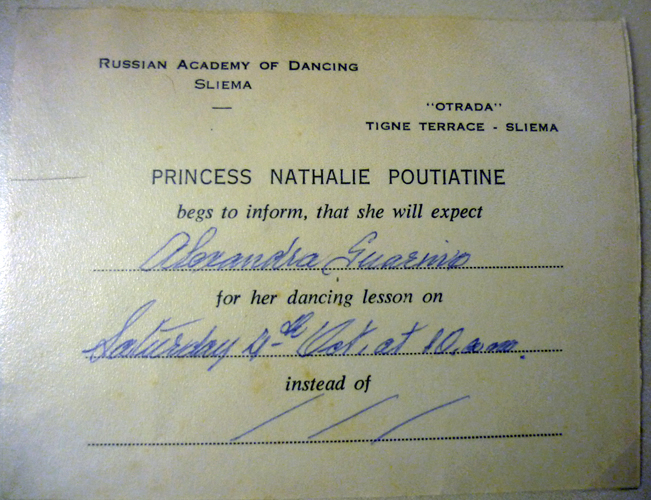 RUSSIAN ACADEMY OF DANCING
SLIEMA
"OTRADA"
TIGNE TERRACE - SLIEMA
PRINCESS NATHALIE POUTIATINE
begs to inform, that she will expect
Alexandra Guarino
for her dancing lesson on
Saturday 4th Oct. at 10.a.m.
instead of